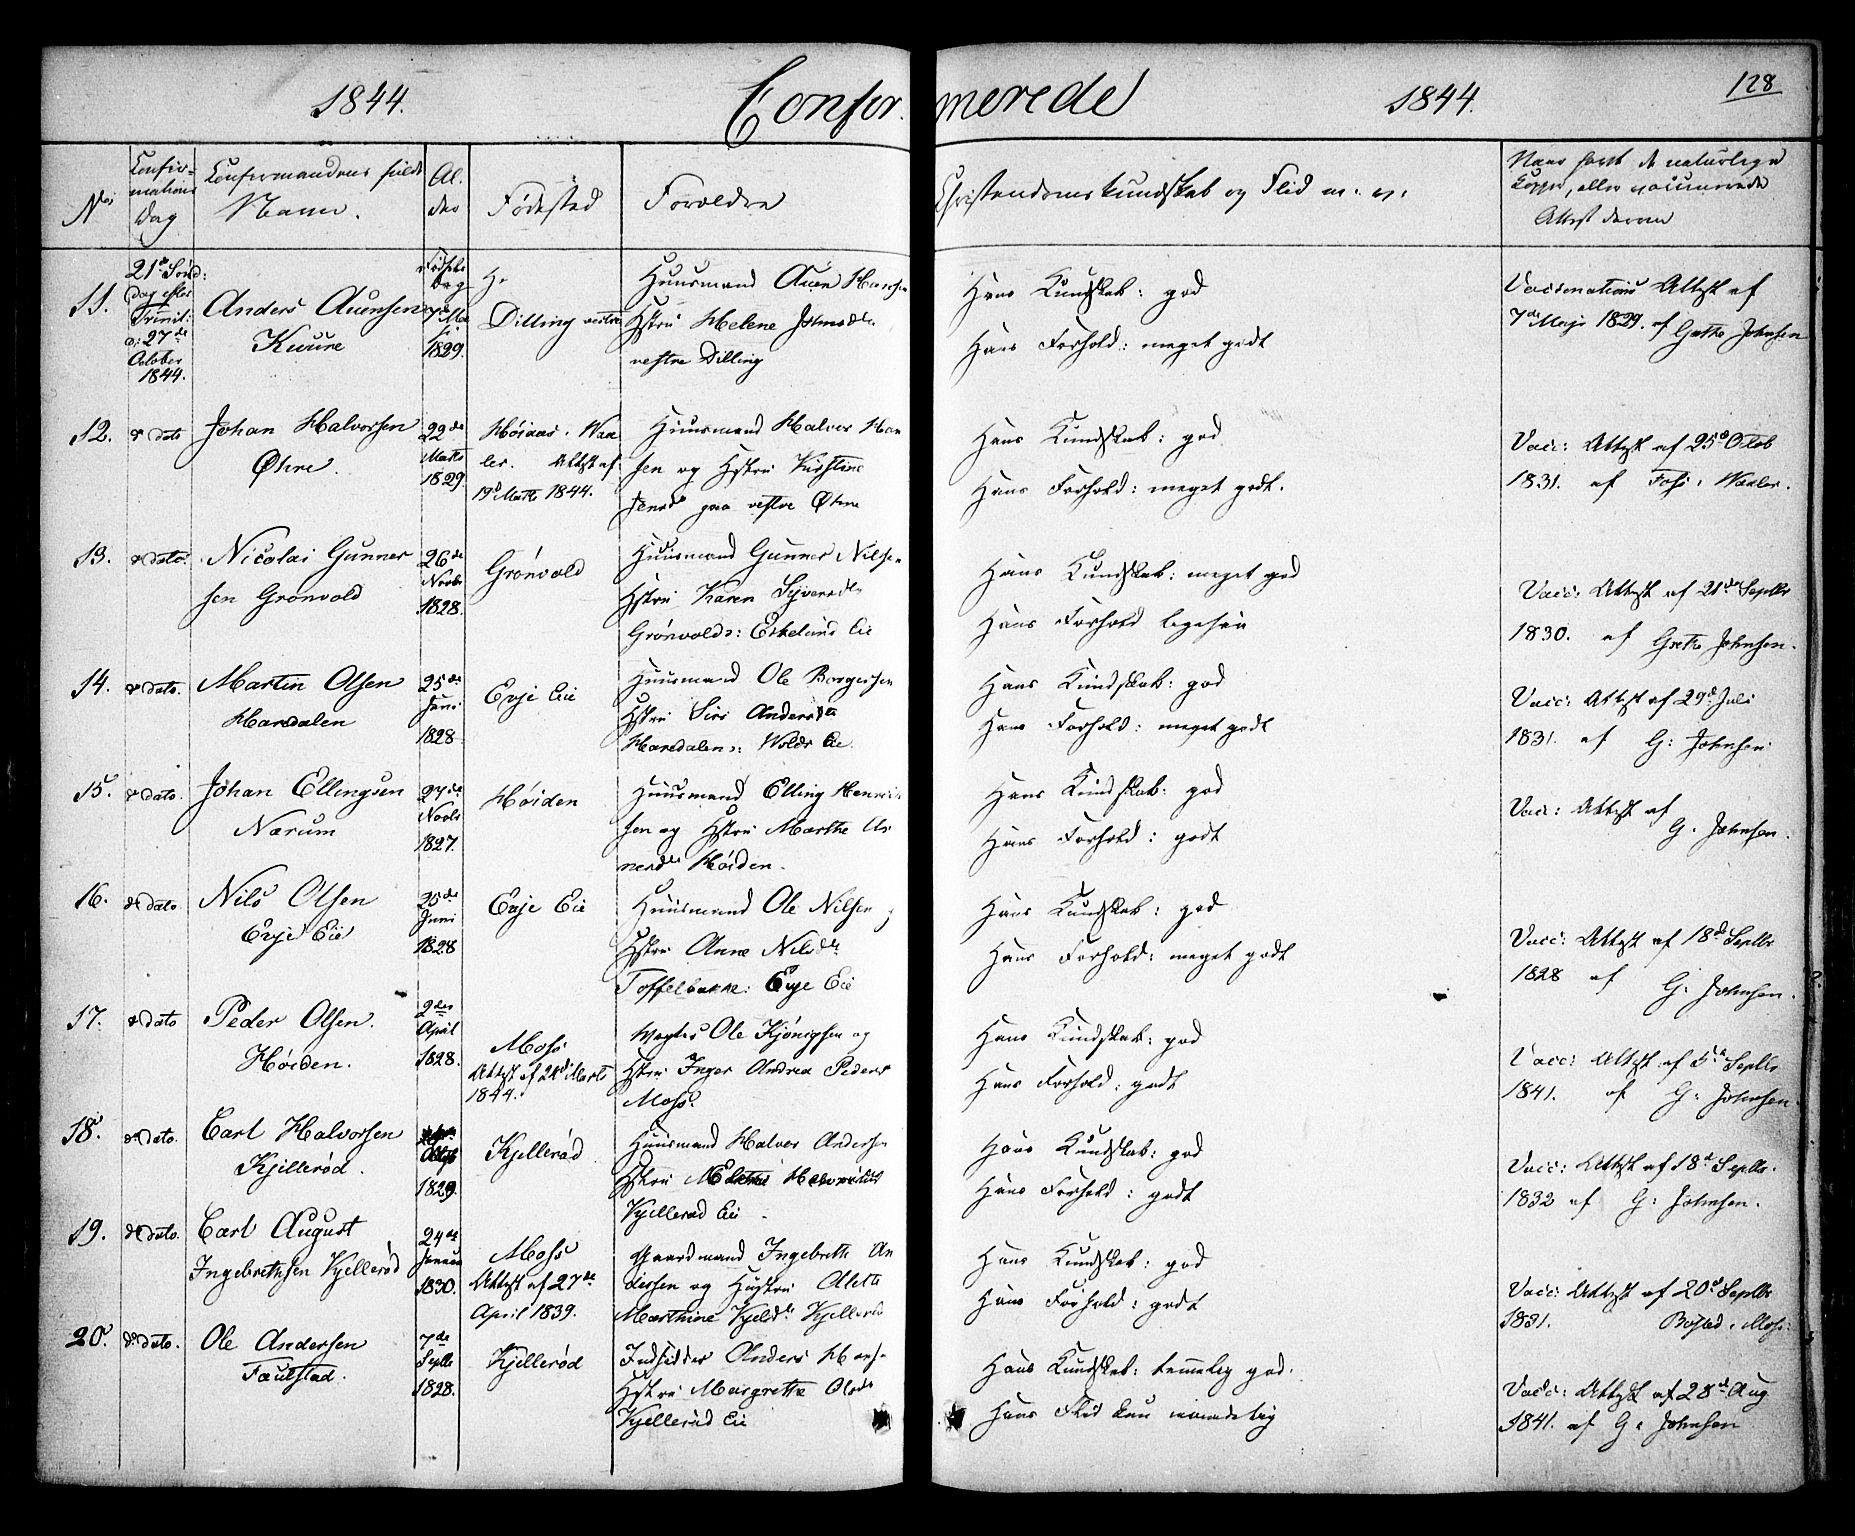 1844.
Confir
merede
1844.
128
No
Confir-
mations
Dag
Confirmandens fulde
Navn.
Al.
der
Fødested
Forældre
Christendomskundskab og Flid m. v.
Naar havt de naturlige
Kopper, eller vaccinerede
Attest derom
11.
21de Sønd:
dag efter
Trinit:
d: 27de
October
1844.
Anders Auensen
Kuure
Fødsels
Dag
7de Mai
1829.
Dilling vestre
Huusmand Auen Hansen
Hstru Helene
vestre Dilling
Hans Kundskab: god
Hans Forhold: meget godt
Vaccinations Attest af
7de Maji 1829. af Grethe Johnsen
12.
do dato
Johan Halvorsen
Øhre.
22de
Marts
1829.
Høiaas. Waa
ler. Attest af
19d Marts 1844.
Huusmand Halver Han
sen og Hstru Kirstine
Jensd paa vestre Øhre
Hans Kundskab: god
Hans Forhold: meget godt.
Vacc: Attest af 25d Octob
1831. af Foss i Waaler.
13.
do dato.
Nicolai Gunner
sen Grønvold
26de
Novbr
1828.
Grønvold
Huusmand Gunner Nilsen
Hstru Karen Syversdtr
Grønvold: Eskelund Eie
Hans Kundskab: meget god
Hans Forhold ligesaa
Vacc: Attest af 21de Septbr
1830. af Grethe Johnsen.
14.
do dato.
Martin Olsen
Haredalen
25de
Juni
1828
Evje Eie
Huusmand Ole Borgersen
Hstru Siri Andersdtr
Haredalen: Wolds Eie.
Hans Kundskab: god
Hans Forhold: meget godt
Vacc: Attest af 29d Juli
1831. af G: Johnsen:
15.
do dato.
Johan Ellengsen
Nærum
27de
Novbr
1827.
Høiden
Huusmand Elling Henrik
sen og Hstru Marthe Ar
nesdtr Høiden.
Hans Kundskab: god
Hans Forhold: godt
Vacc: Attest af
G. Johnsen.
16.
do dato
Nils Olsen
Evje Eie
25de
Juni
1828
Evje Eie
Huusmand Ole Nilsen
Hstru Anne Nilsdtr
Toffelbakke: Evje Eie
Hans Kundskab: god
Hans Forhold: meget godt
Vacc: Attest af 18d Septbr
1828 af G: Johnsen.
17.
do dato
Peder Olsen.
Høiden.
2den
April
1828.
Moss
Attest af 24d Marts
1844.
Vægter Ole Kjønigsen og
Hstru Inger Andrea Peders
Moss.
Hans Kundskab: god
Hans Forhold: godt
Vacc: Attest af 5d Septbr
1841. af G: Johnsen.
18.
do dato.
Carl Halvorsen
Kjillerød.
1829.
Kjellerød
Huusmand Halver Andersen
Hstru
Kjellerød Eie
Hans Kundskab: god
Hans Forhold: godt
Vacc: Attest af 18d Septbr.
1832 af G: Johnsen.
19.
do dato.
Carl August
Ingebrethsen Kjellerød
24de
Januar
1830.
Moss
Attest af 27de
April 1839.
Gaardmand Ingebreth An
dersen og Hustru Alete
Marthine Kjeldsdtr Kjellerød
Hans Kundskab: god
Hans Forhold: godt
Vacc: Attest af 20d Septbr
1831. Bøsted. Moss:
20.
do dato.
Ole Andersen
Faulstad.
7de
Septbr
1828.
Kjellerød
Inderster Anders Hanse
Hstru Margrethe Olsdtr
Kjellerød Eie
Hans Kundskab: temmelig god.
Hans Flid kun maadelig
Vacc: Attest af 28d Aug
1841. af G. Johnsen